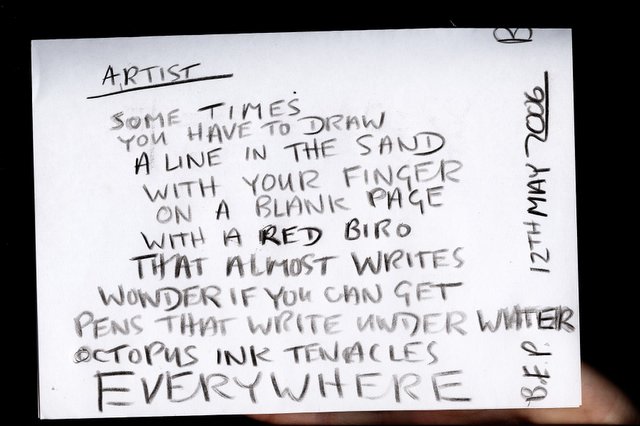 ARTIST
SOME TIMES
YOU HAVE TO DRAW
A LINE IN THE SAND
WITH YOUR FINGER
ON A BLANK PAGE
WITH A RED BIRO
THAT ALMOST WRITES
WONDER IF YOU CAN GET
PENS THAT WRITE UNDER WATER
OCTOPUS INK TENACLES
EVERYWHERE
B.F.P. 12TH MAY 2006